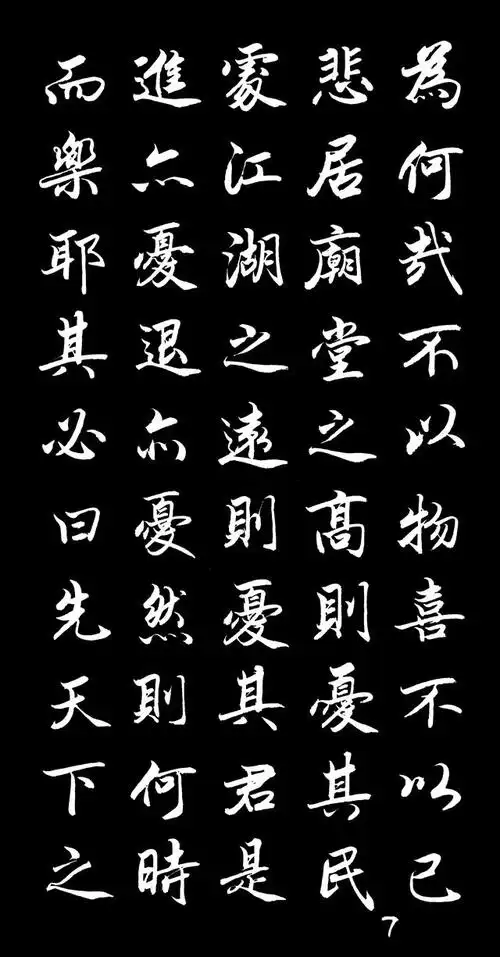 為何哉不以物喜不以己
悲居廟堂之高則憂其民
處江湖之遠則憂其君是
進亦憂退亦憂然則何時
而樂耶其必曰先天下之
7